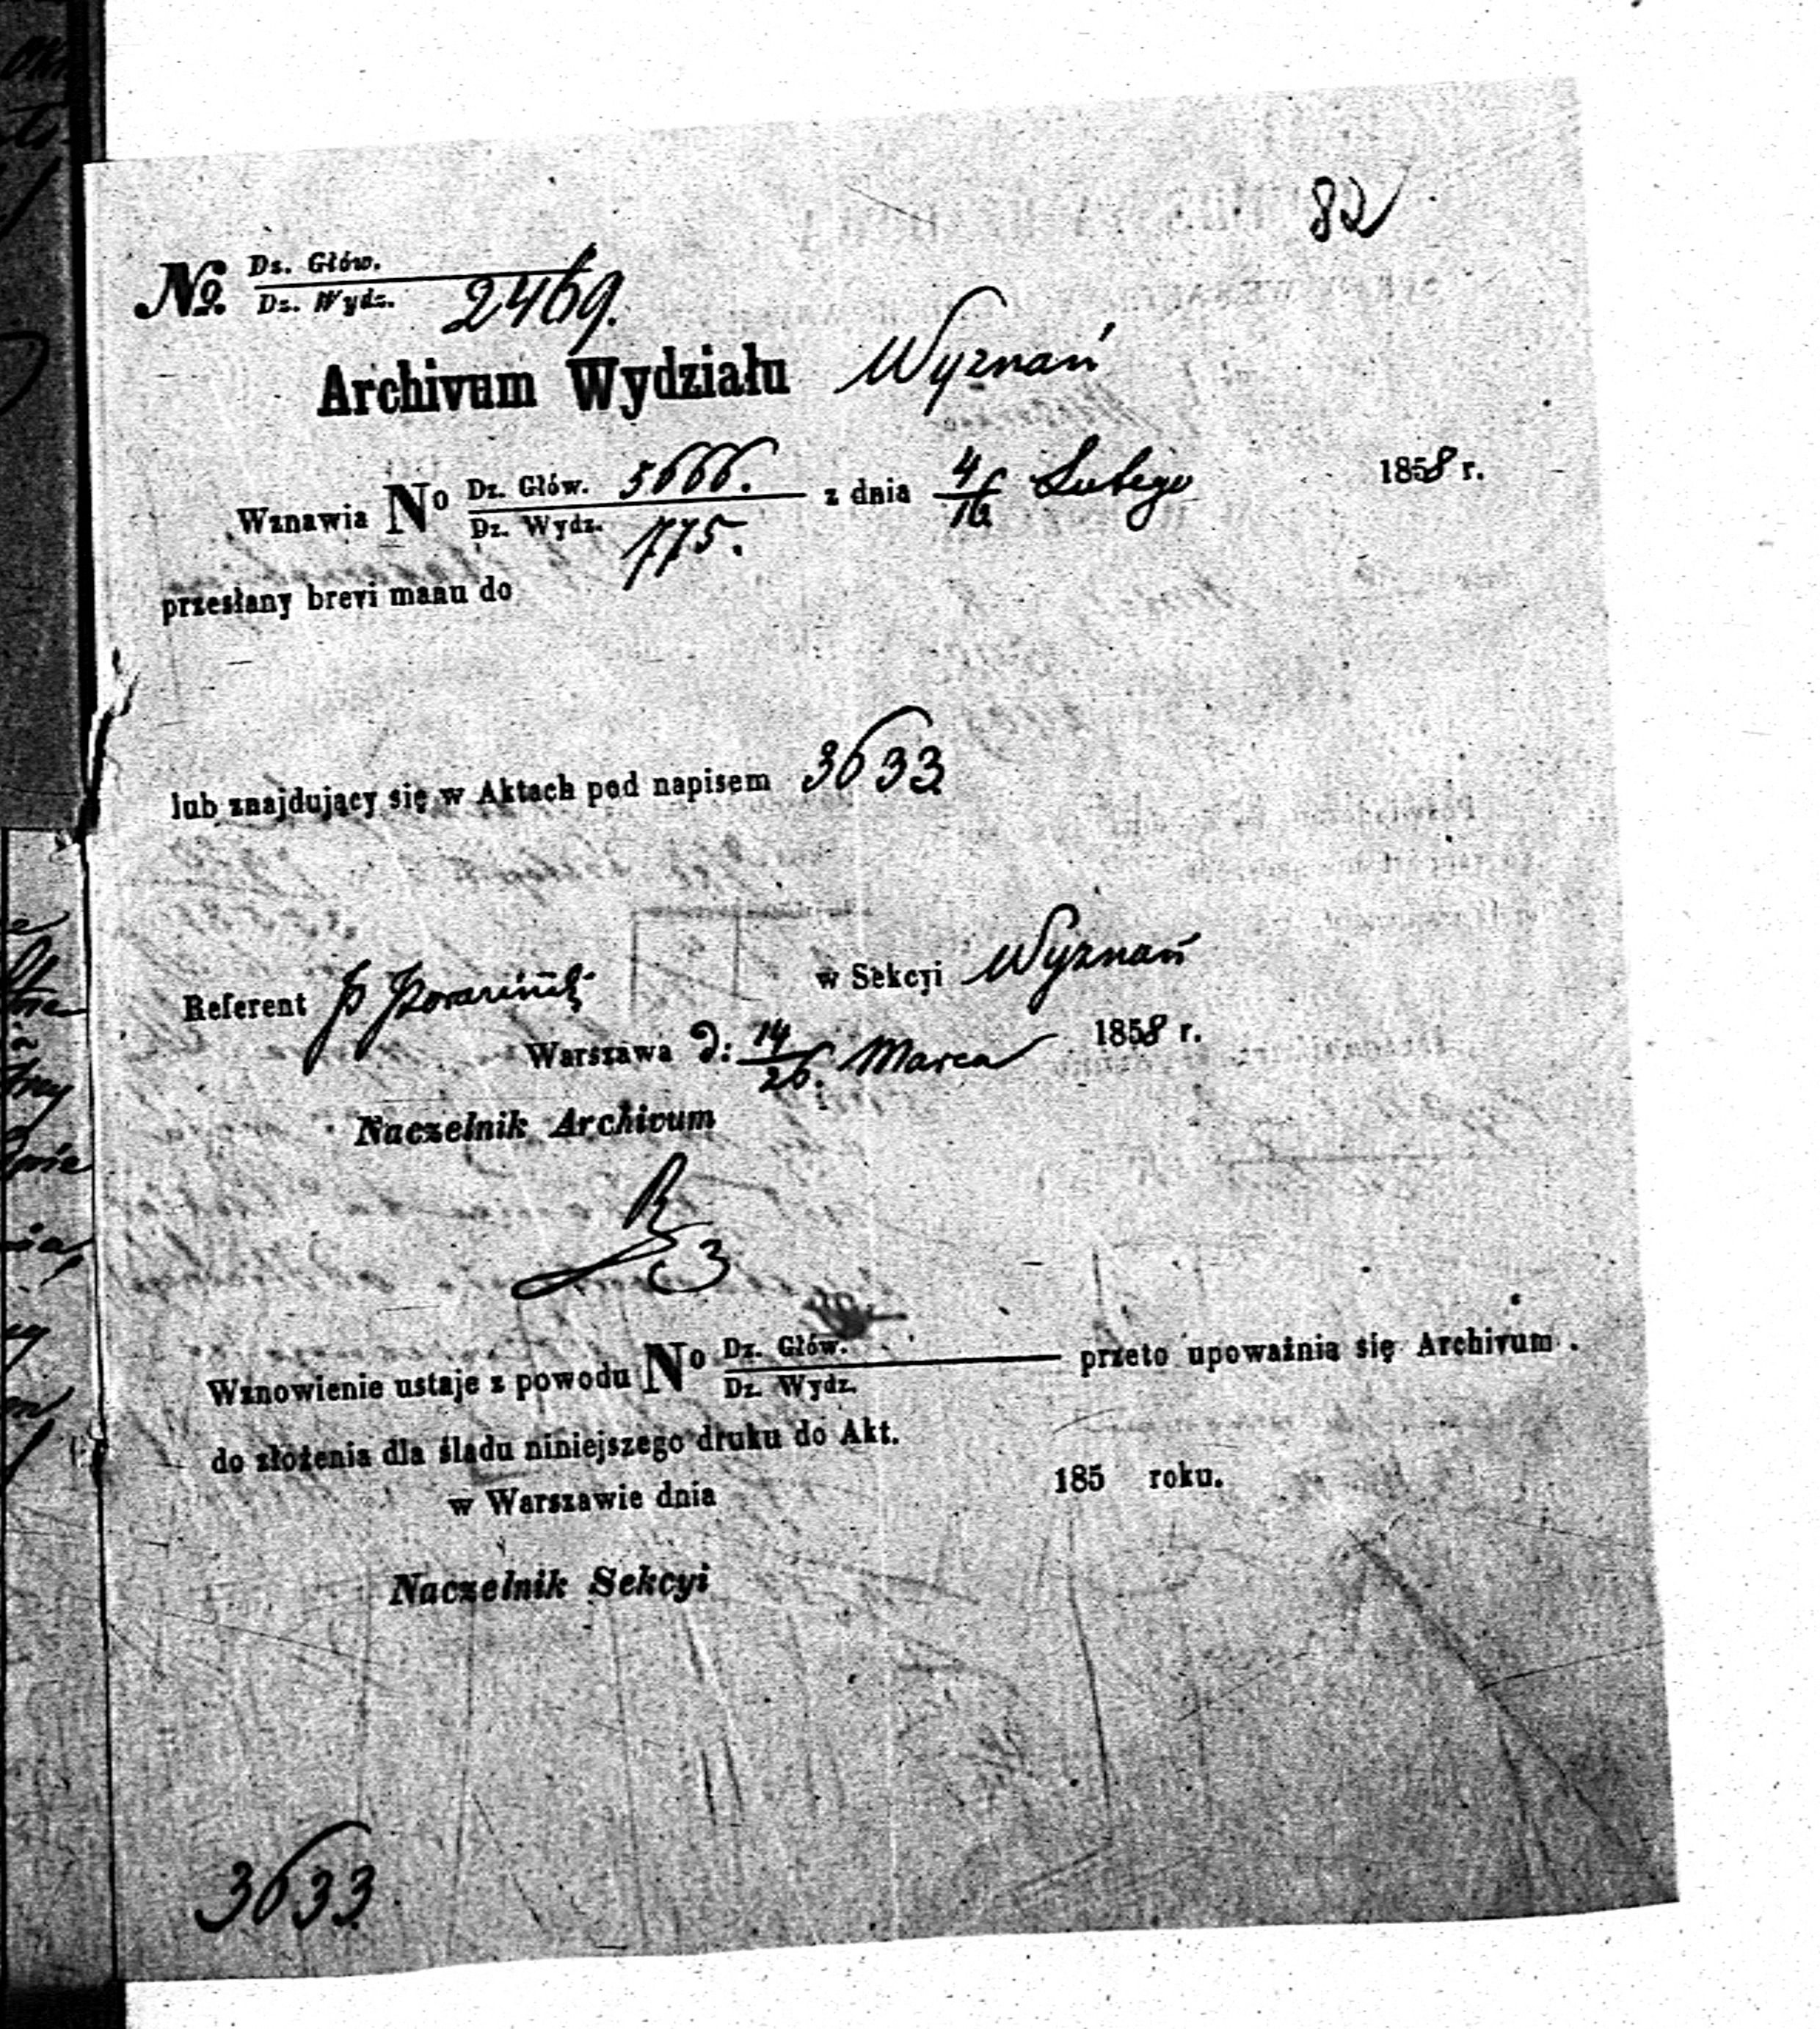 82
No. Dz. Głów.
Dz. Wydz. 2469.
Archivum Wydziału Wyznań
Wznawia No Dz. Głów. 5666. z dnia 4/16 Lutego 1858 r.
Dz. Wydz. 775.
przesłany brevi manu do
lub znajdujący się w Aktach pod napisem 3633
Referent P. w Sekcyi Wyznań
Warszawa d: 14/26. Marca 1858 r.
Naczelnik Archivum
Wznowienie ustaje z powodu No Dz. Głów. przeto upoważnia się Archivum.
Dz. Wydz.
do złożenia dla śladu niniejszego druku do Akt.
w Warszawie dnia 185 roku.
Naczelnik Sekcyi
3633